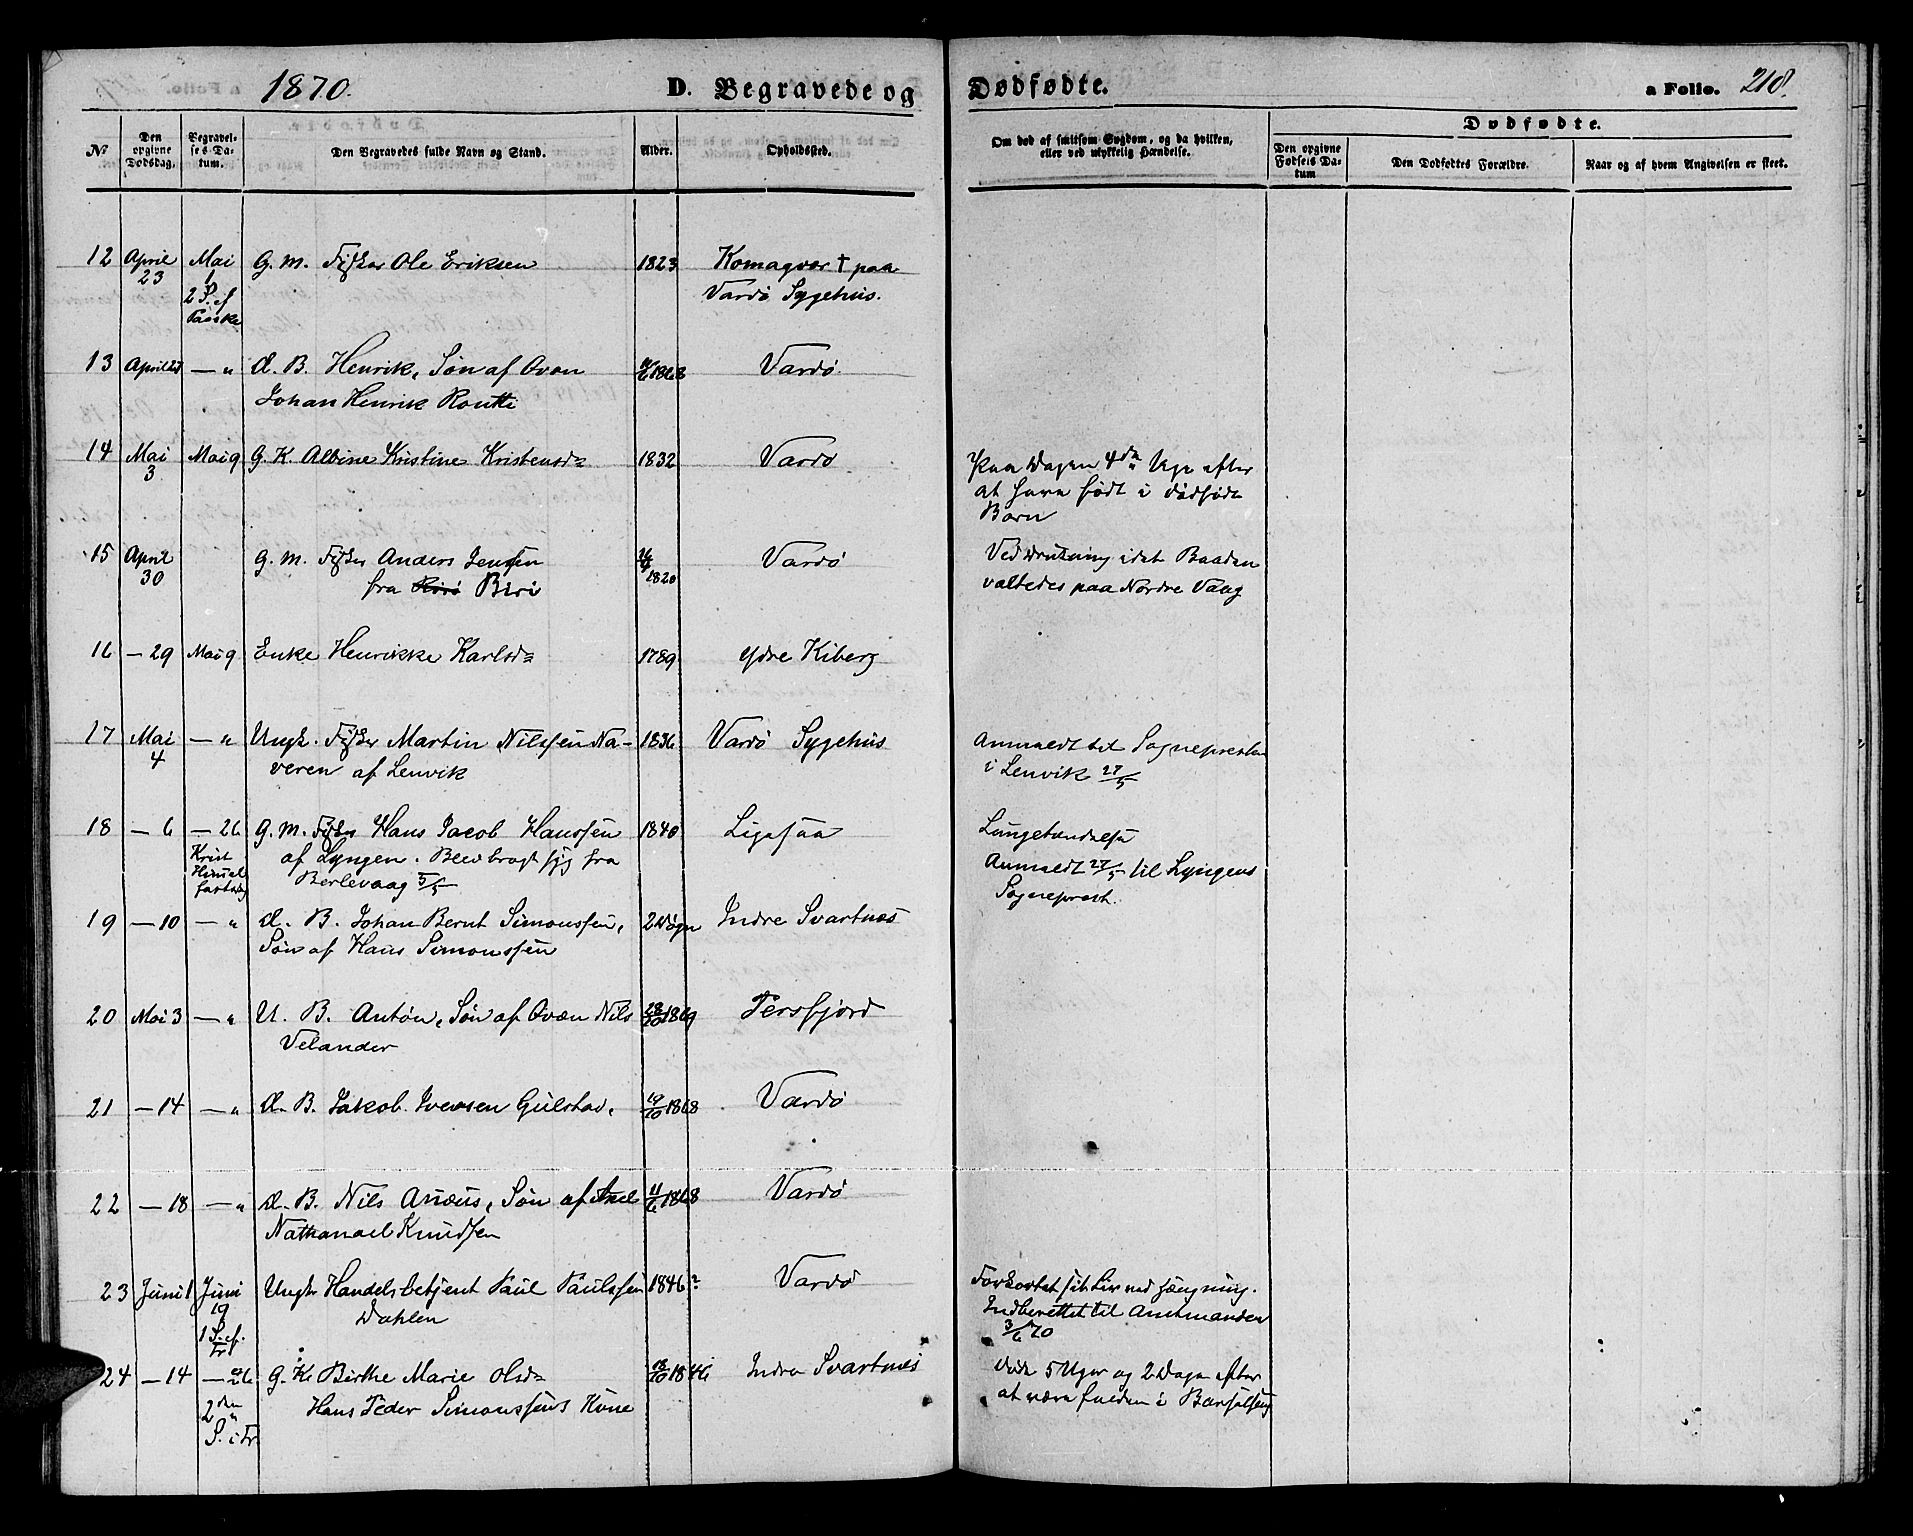 1870. D. Begravede og Dødfødte. a Folio. 218.
No. Den opgivne Dødsdag. Begravelses Datum. Den Begravedes fulde Navn og Stand. Alder. Opholdssted. Om død af smitsom Sygdom, og da hvilken, eller ved ulykkelig Hændelse. Dødfødte.
Den opgivne Fødsels Datum Den Dødfødtes Forældre. Naar og af hvem Angivelsen er skeet.
12 April 23 Mai 1 G. M. Fisker Ole Eriksen 1823 Komagvær † paa
2 S. ef Paaske Vardø Sygehus.
13 April — " d. B. Henrik, Søn af Qvæn 1868 Vardø
Johan Henrik Routti
14 Mai 3 Mai 9 G. K. Albine Kristine Kristensd= 1832 Vardø Paa Dagen 4de Uge efter
at have født i dødfødt
Barn
15 April 30 G. M. Fisker Anders Jensen 1820 Vardø Ved Drukning idet Baaden
fra Biri væltedes paa Nordre Vaag
16 — 29 Mai 9 Enke Henrikke Karlsd= 1789 Ydre Kiberg
17 Mai 4 — " Ungk. Fisker Martin Nilssen Na- 1836 Vardø Sygehus Anmeldt til Sognepresten
veren af Lenvik i Lenvik 27/5
18 — 6 — 26 G. M. Fisker Hans Jacob Hanssen 1840 Ligesaa Lungebetændelse
Krist Himmelfartsdag af Lyngen. Blev bragt syg fra Anmeldt 27/5 til Lyngens
Berlevaag 5/5 Sogneprest.
19 — 10 — " d. B. Johan Bernt Simonssen, 2 Døgn Indre Svartnes
Søn af Hans Simonssen
20 Mai 3 — " U. B. Anton, Søn af Qvæn Nils 28/10 1869 Persfjord
Velander
21 — 14 — " d. B. Jakob Iversen Gulstad, 19/10 1868 Vardø
22 — 18 — " d. B. Nils Anæus, Søn af Axel 11/6 1868 Vardø
Nathanael Knudsen
23 Juni 1 Juni 19 Ungk Handelsbetjent Paul Paulssen 1846? Vardø Forkortet sit Liv ved Hængning.
1 S. ef. Tr Dahlen Indberettet til Amtmanden
3/6 70
24 — 14 — 26 G. K. Birthe Marie Olsd= 18/10 1846 Indre Svartnes Døde 5 Uger og 2 Dage efter
2den S. i Tr. Hans Peder Simonssens Kone at være falden i Barselseng